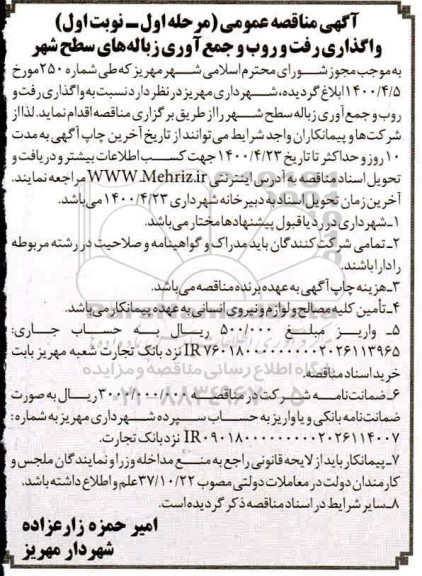 آگهی مناقصه عمومی (مرحله اول ــ نوبت اول)
واگذاری رفت و روب و جمع آوری زباله‌های سطح شهر
به موجب مجوز شورای محترم اسلامی شهر مهریز که طی شماره ۲۵۰ مورخ
۱۴۰۰/۴/۵ ابلاغ گردیده، شهرداری مهریز در نظر دارد نسبت به واگذاری رفت و
روب و جمع آوری زباله سطح شهر را از طریق برگزاری مناقصه اقدام نماید. لذا از
شرکت‌ها و پیمانکاران واجد شرایط می‌توانند از تاریخ آخرین چاپ آگهی به مدت
۱۰ روز و حداکثر تا تاریخ ۱۴۰۰/۴/۲۳ جهت کسب اطلاعات بیشتر و دریافت و
تحویل اسناد مناقصه به آدرس اینترنتی WWW.Mehriz.ir مراجعه نمایند.
آخرین زمان تحویل اسناد به دبیرخانه شهرداری ۱۴۰۰/۴/۲۳ می‌باشد.
۱ـ شهرداری در رد یا قبول پیشنهادها مختار می‌باشد.
۲ـ تمامی شرکت کنندگان باید مدراک و گواهینامه و صلاحیت در رشته مربوطه
را دارا باشند.
۳ـ هزینه چاپ آگهی به عهده برنده مناقصه می‌باشد.
۴ـ تأمین کلیه مصالح و لوازم و نیروی انسانی به عهده پیمانکار می‌باشد.
۵ـ واریز مبلغ ۵۰۰/۰۰۰ ریال به حساب جاری:
نزد بانک تجارت شعبه مهریز بابت
خرید اسناد مناقصه.
۶ـ ضمانت‌نامه شرکت در مناقصه ریال به صورت
ضمانت‌نامه بانکی و یا واریز به حساب سپرده شهرداری مهریز به شماره:
نزد بانک تجارت.
۷ـ پیمانکار باید از لایحه قانونی راجع به منع مداخله وزرا و نمایندگان ملجس و
کارمندان دولت در معاملات دولتی مصوب ۳۷/۱۰/۲۲ علم و اطلاع داشته باشد.
۸ـ سایر شرایط در اسناد مناقصه ذکر گردیده است.
امیر حمزه زارعزاده
شهردار مهریز